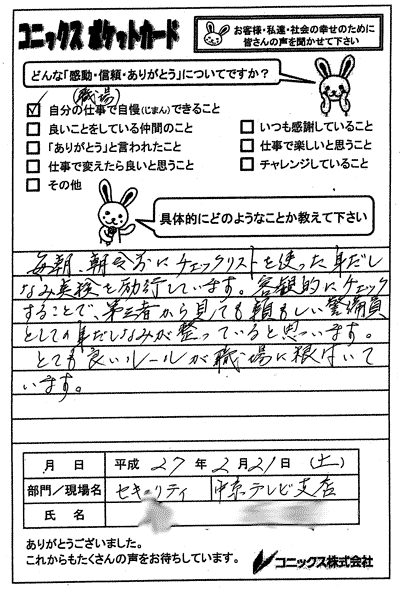 コニックス ポケットカード
お客様・私達・社会の幸せのために
皆さんの声を聞かせて下さい
どんな「感動・信頼・ありがとう」についてですか?
(職場)
自分の仕事で自慢(じまん)できること
良いことをしている仲間のこと
いつも感謝していること
「ありがとう」と言われたこと
仕事で楽しいと思うこと
仕事で変えたら良いと思うこと
チャレンジしていること
その他
具体的にどのようなことか教えて下さい
毎朝、朝会前にチェックリストを使った身だし
なみ点検を励行しています。客観的にチェック
することで、第三者から見ても頼もしい警備員
としての身だしなみが整っていると思います。
とても良いルールが職場に根付いて
います。
月 日 平成 27 年 2 月 21 日 (土)
部門/現場名 セキュリティ 中京テレビ支店
氏 名
ありがとうございました。
これからもたくさんの声をお待ちしています。
コニックス株式会社